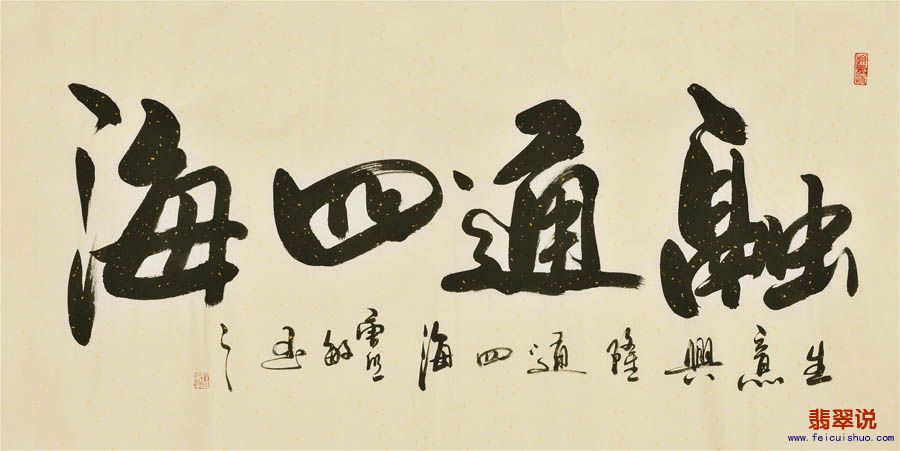 融通四海
生意興隆通四海
敏书之
翡翠说
www.feicuishuo.com